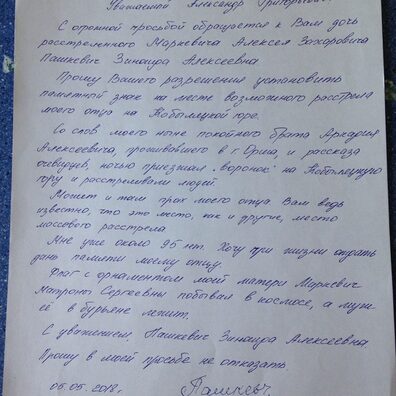 Уважаемый Александр Григорьевич
С огромной просьбой обращается к Вам дочь
расстреленного Маркевича Алексея Захаровича
Пашкевич Зинаида Алексеевна
Прошу Вашего разрешения установить
памятный знак на месте возможного расстрела
моего отца на Кобыляцкой горе.
Со слов моего ныне покойного брата Аркадия
Алексеевича, проживавшего в г. Орша, и рассказа
очевидцев, ночью приезжал "воронок" на Кобыляцкую
гору и расстреливали людей.
Может и там прах моего отца. Вам ведь
известно, что это место, как и другие, место
массового расстрела
Мне уже около 95 лет. Хочу при жизни отдать
дань памяти моему отцу
Флаг с орнаментом моей матери Маркевич
Матроны Сергеевны побывал в космосе, а муж
её в бурьяне лежит.
С уважением, Пашкевич Зинаида Алексеевна.
Прошу в моей просьбе не отказать
05.05.2018г. Пашкевич